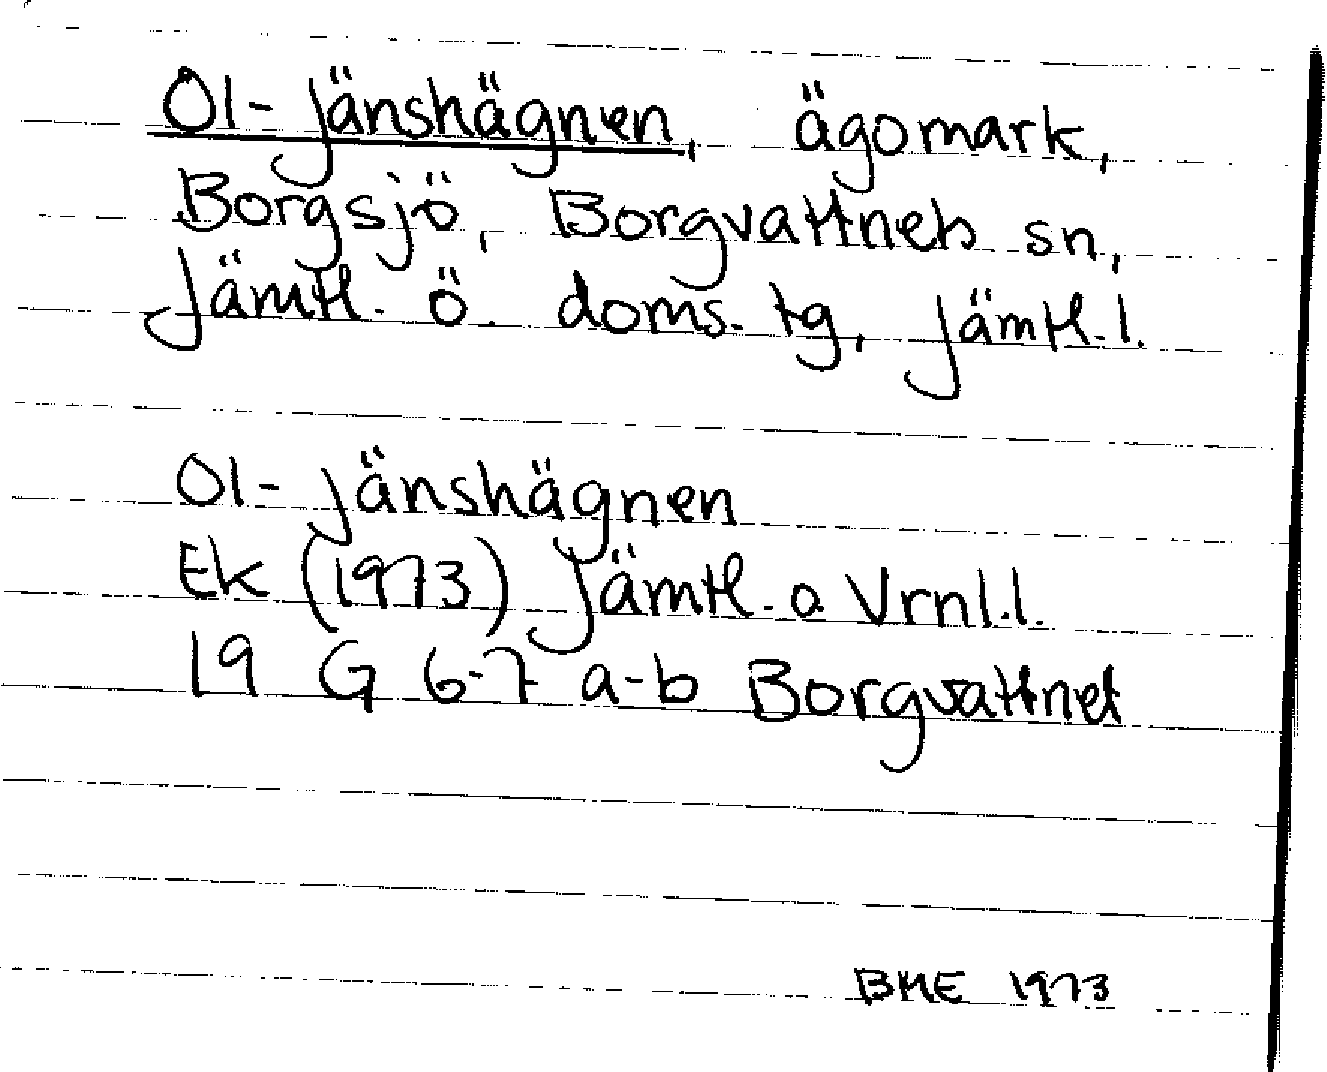 Ol-Jänshägnen, ägomark,
Borgsjö, Borgvattnets sn,
Jämtl. ö. doms. tg, Jämtl.l.
Ol-Jänshägnen
Ek (1973) Jämtl. o Vrnl.l.
19 G 6-7 a-b Borgvattnet
BME 1973